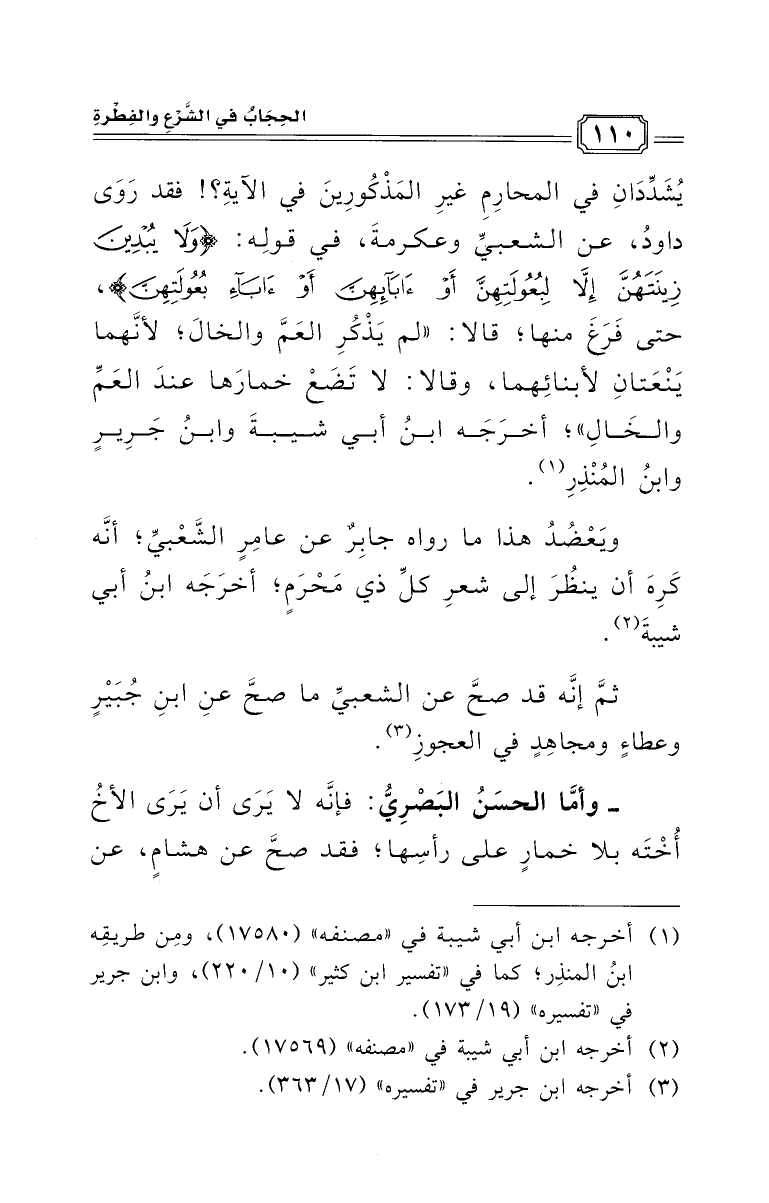 الحِجَابُ في الشَّرْعِ والفِطْرةِ
١١٠
يُشَدِّدَانِ في المحارِمِ غيرِ المَذْكُورِينَ في الآيةِ؟! فقد رَوَى
داودُ، عن الشعبيِّ وعكرمةَ، في قولِه: ﴿وَلَا يُبْدِينَ
زِينَتَهُنَّ إِلَّا لِبُعُولَتِهِنَّ أَوْ ءَابَآئِهِنَّ أَوْ ءَابَآءِ بُعُولَتِهِنَّ﴾،
حتى فَرَغَ منها؛ قالا: «لم يَذْكُرِ العَمَّ والخالَ؛ لأنَّهما
يَنْعَتانِ لأبنائِهما، وقالا: لا تَضَعْ خمارَها عندَ العَمِّ
والخَالِ»؛ أخرَجَه ابنُ أبي شيبةَ وابنُ جَرِيرٍ
وابنُ المُنْذِرِ(١).
ويَعْضُدُ هذا ما رواه جابِرٌ عن عامِرٍ الشَّعْبيِّ؛ أنَّه
كَرِهَ أن ينظُرَ إلى شعرِ كلِّ ذي مَحْرَمٍ؛ أخرَجَه ابنُ أبي
شيبةَ(٢).
ثمَّ إنَّه قد صحَّ عن الشعبيِّ ما صحَّ عنِ ابنِ جُبَيْرٍ
وعطاءٍ ومجاهدٍ في العجوزِ(٣).
ـ وأمَّا الحسَنُ البَصْرِيُّ: فإنَّه لا يَرَى أن يَرَى الأخُ
أُخْتَه بلا خمارٍ على رأسِها؛ فقد صحَّ عن هشامٍ، عن
(١) أخرجه ابن أبي شيبة في «مصنفه» (١٧٥٨٠)، ومِن طريقِه
ابنُ المنذِر؛ كما في «تفسير ابن كثير» (١٠/ ٢٢٠)، وابن جرير
في «تفسيره» (١٩/ ١٧٣).
(٢) أخرجه ابن أبي شيبة في «مصنفه» (١٧٥٦٩).
(٣) أخرجه ابن جرير في «تفسيره» (١٧/ ٣٦٣).